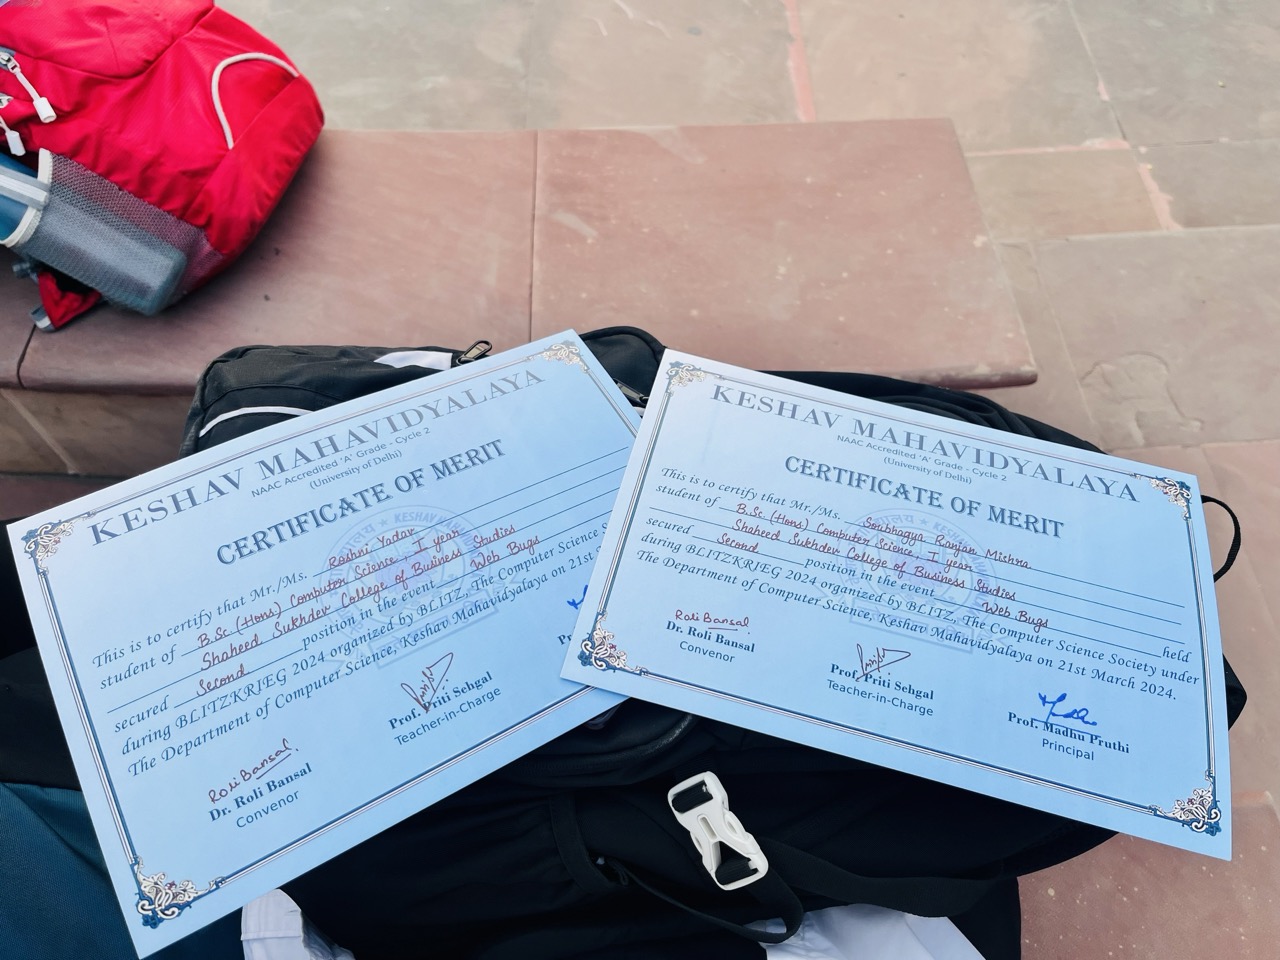 KESHAV MAHAVIDYALAYA
NAAC Accredited 'A' Grade - Cycle 2
(University of Delhi)
CERTIFICATE OF MERIT
This is to certify that Mr./Ms. Roshni Yadav
student of B.Sc. (Hons) Computer Science I year
Shaheed Sukhdev College of Business Studies
secured Second position in the event Web Bugs
during BLITZKRIEG 2024 organized by BLITZ, The Computer Science
The Department of Computer Science, Keshav Mahavidyalaya on 21st
Roli Bansal
Dr. Roli Bansal
Convenor
Prof. Priti Sehgal
Teacher-in-Charge
KESHAV MAHAVIDYALAYA
NAAC Accredited 'A' Grade - Cycle 2
(University of Delhi)
CERTIFICATE OF MERIT
This is to certify that Mr./Ms. Soubhagya Ranjan Mishra
student of B.Sc. (Hons) Computer Science I year
Shaheed Sukhdev College of Business Studies
secured Second position in the event Web Bugs held
during BLITZKRIEG 2024 organized by BLITZ, The Computer Science Society under
The Department of Computer Science, Keshav Mahavidyalaya on 21st March 2024.
Roli Bansal
Dr. Roli Bansal
Convenor
Prof. Priti Sehgal
Teacher-in-Charge
Prof. Madhu Pruthi
Principal